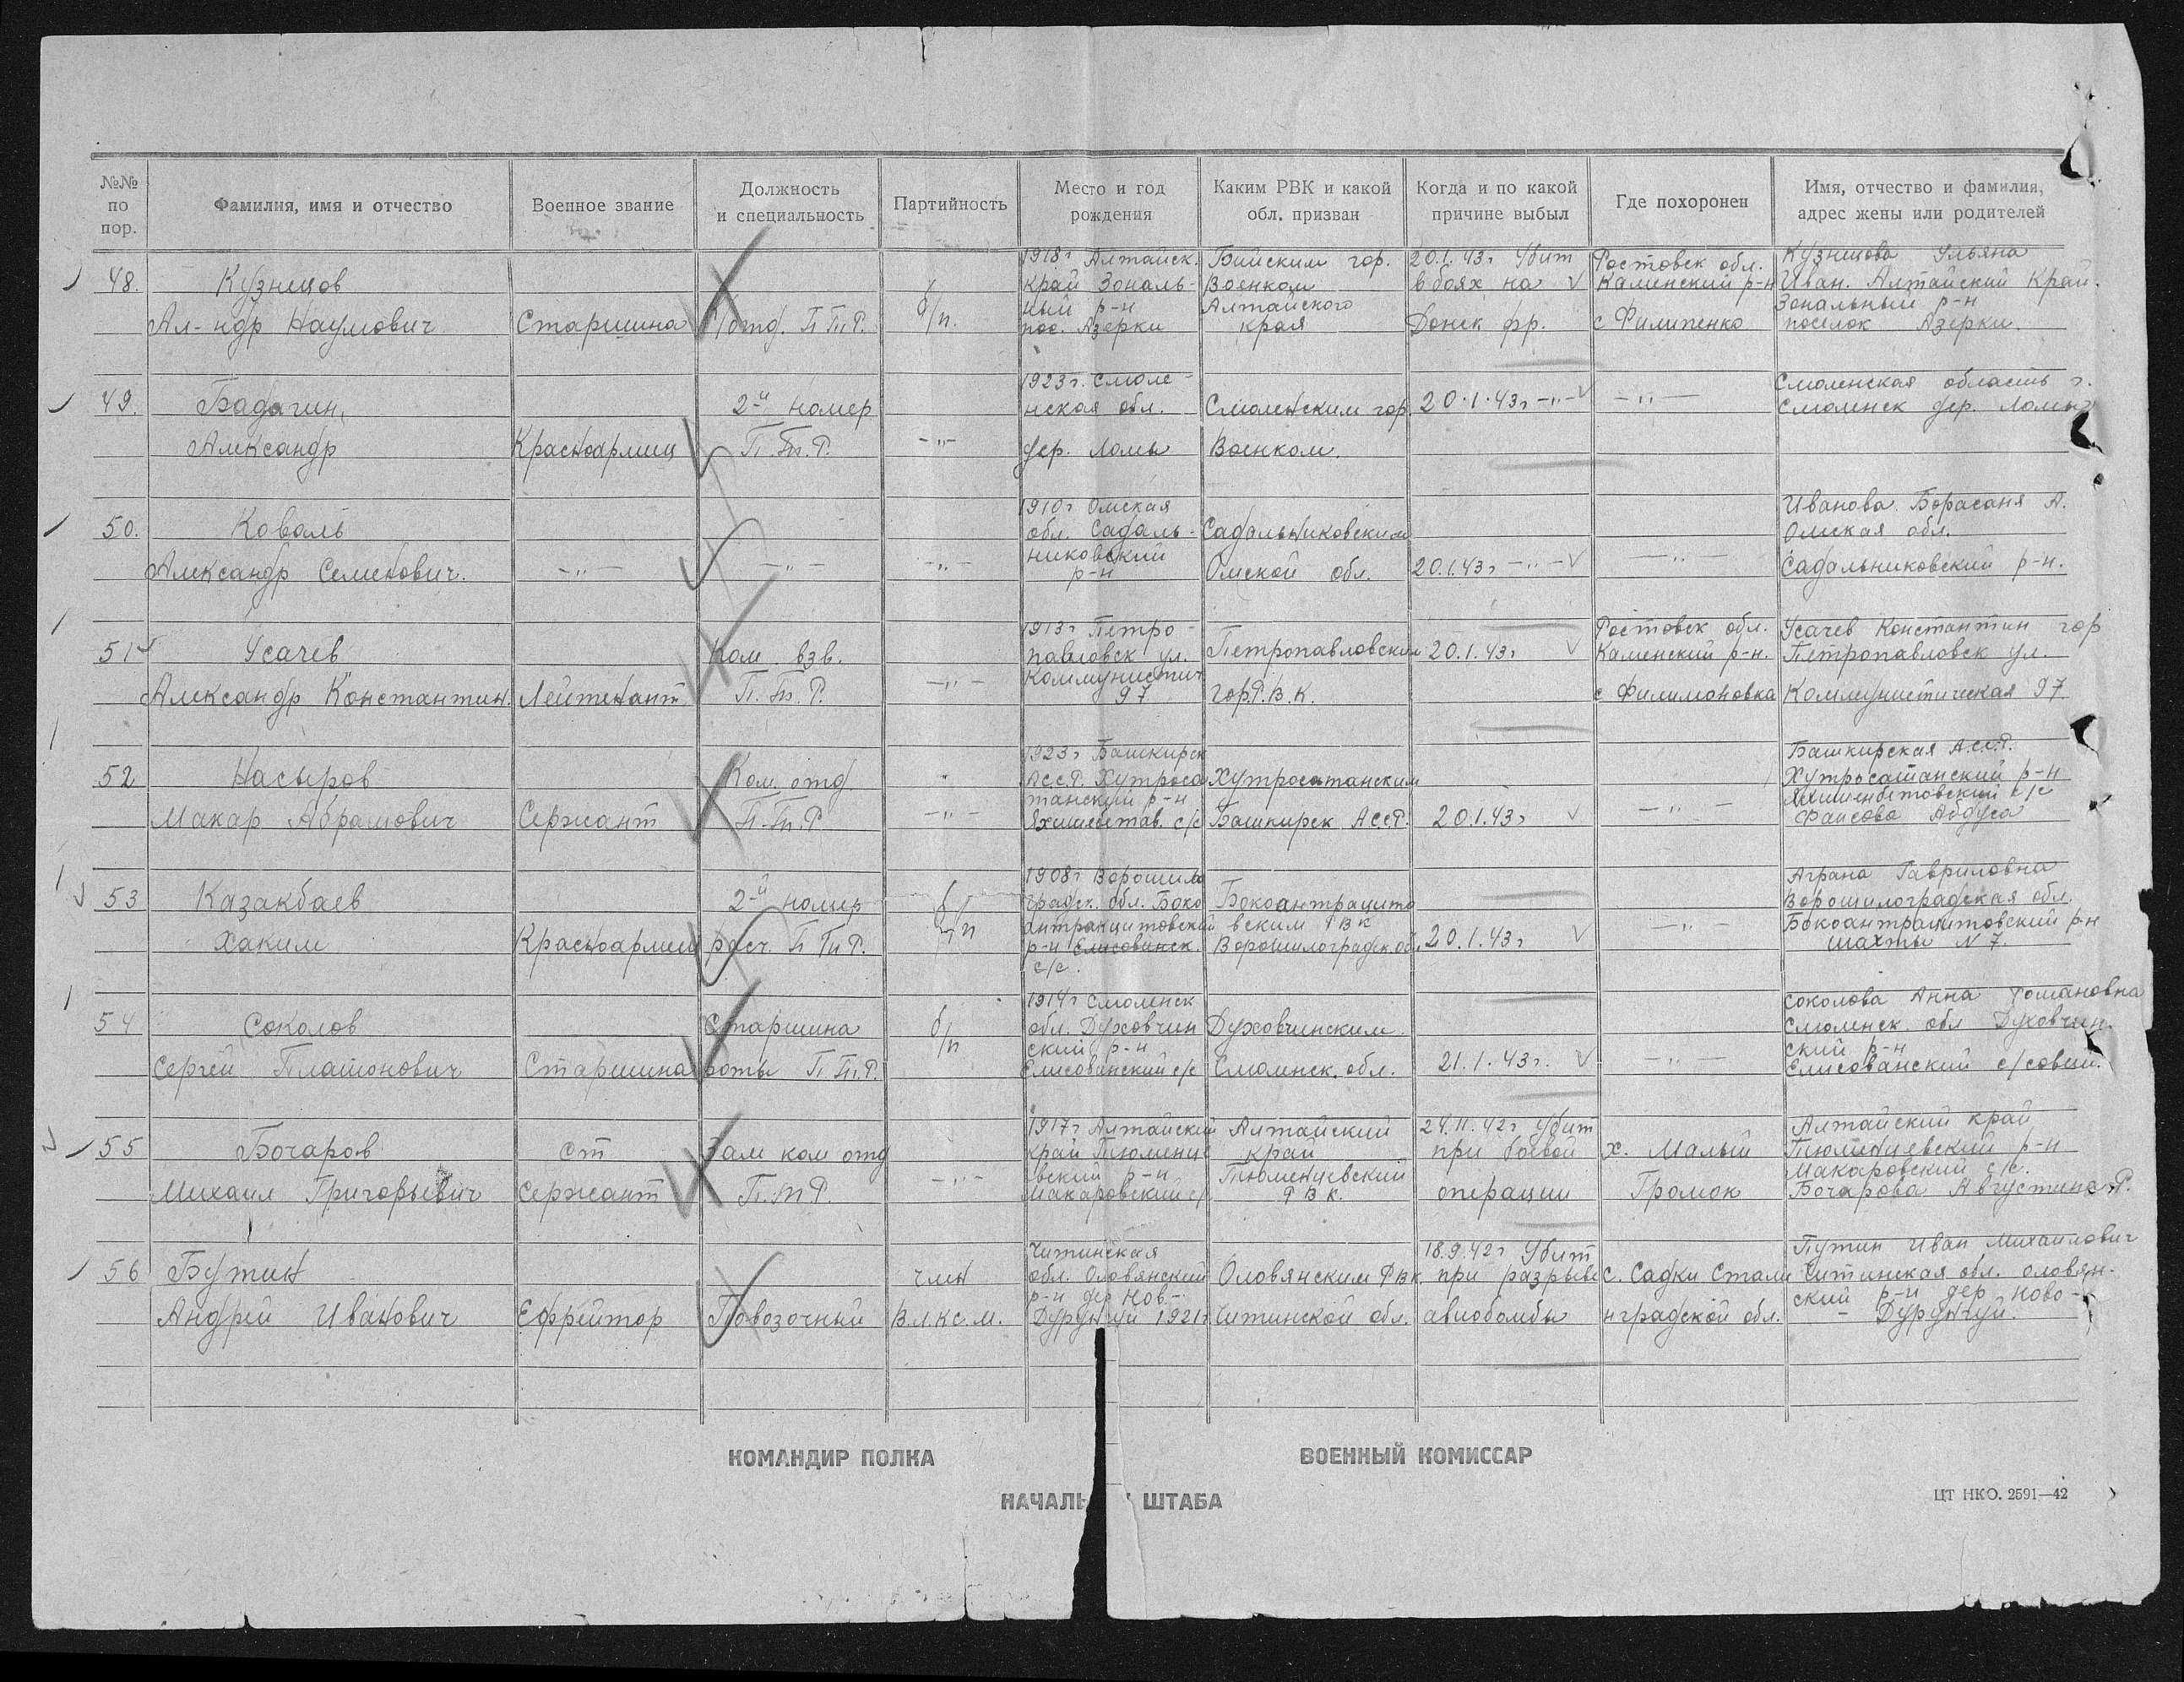 №№ по пор.
Фамилия, имя и отчество
Военное звание
Должность и специальность
Партийность
Место и год рождения
Каким РВК и какой обл. призван
Когда и по какой причине выбыл
Где похоронен
Имя, отчество и фамилия, адрес жены или родителей
48.
Кузнецов
Ал-ндр Наумович
Старшина
К/отд. П.Т.Р.
б/п
1918г Алтайск.
край Зональ-
ный р-н
пос. Азерки
Бийским гор.
Военком
Алтайского
края
20.1.43г Убит
в боях на
Донск фр.
Ростовск обл.
Каменский р-н
с Филипенко
Кузнецова Ульяна
Иван. Алтайский Край.
Зональный р-н
поселок Азерки.
49.
Бадагин,
Александр
Красноармеец
2-й номер
П.Т.Р.
-"-
1923г. Смоле-
нская обл.
дер. Ломы
Смоленским гор.
Военком.
20.1.43г -"-
-"-
Смоленская область г.
Смоленск дер. Ломы
50.
Коваль
Александр Семенович.
-"-
-"-
-"-
1910г Омская
обл. Садаль-
никовский
р-н
Садальниковским
Омской обл.
20.1.43г -"-
-"-
Иванова Борасаня А.
Омская обл.
Садальниковский р-н.
51
Усачев
Александр Константин.
Лейтенант
Ком. взв.
П.Т.Р.
-"-
1913г Петро-
павловск ул.
Коммунистич
97
Петропавловским
гор.Р.В.К.
20.1.43г
Ростовск обл.
Каменский р-н.
с Филимоновка
Усачев Константин гор
Петропавловск ул.
Коммунистическая 97
52
Насыров
Макар Абрамович
Сержант
Ком. отд
П.Т.Р
-"-
1923г Башкирск
АССР. Хутроса
танский р-н
с/с
Хутросатанским
Башкирск АССР.
20.1.43г
-"-
Башкирская АССР.
Хутросатанский р-н
с/с
Фаисова Абдуса
53
Казакбаев
Хаким
Красноармеец
2-й номер
расч. П.Т.Р.
б/п
1908г Ворошило
градск. обл. Боко
антрацитовский
р-н Елисованск.
с/с.
Бокоантрацито
вским РВК
Ворошилоградск. обл
20.1.43г
-"-
Аграна Гавриловна
Ворошилоградская обл.
Бокоантрацитовский р-н
шахты N 7.
54
Соколов
Сергей Платонович
Старшина
Старшина
роты П.Т.Р.
б/п
1914г Смоленск
обл. Духовчин
ский р-н
Елисованский с/с
Духовщинским
Смоленск. обл.
21.1.43г.
-"-
Соколова Анна Романовна
Смоленск. обл Духовчин.
ский р-н
Елисованский с/совет.
55
Бочаров
Михаил Григорьевич
Ст
Сержант
Зам ком отд
П.Т.Р.
-"-
1917г Алтайский
край Тюменце
вский р-н
Макаровский с/
Алтайский
край
Тюменцевский
РВК.
24.11.42г Убит
при боевой
операции
х. Малый
Громок
Алтайский край
Тюменцевский р-н
Макаровский с/с.
Бочарова Августина Р.
56
Бутин
Андрей Иванович
Ефрейтор
Повозочный
член
В.Л.К.С.М.
Читинская
обл. Оловянский
р-н дер Нов.-
Дурунгуй 1921г
Оловянским РВК
Читинской обл.
18.9.42г Убит
при разрыве
авиабомбы
с. Садки Стали
нградской обл.
Путин Иван Михайлович
Читинская обл. оловян-
ский р-н дер Ново-
- Дурунгуй.
КОМАНДИР ПОЛКА
ВОЕННЫЙ КОМИССАР
НАЧАЛЬ ШТАБА
ЦТ НКО. 2591—42